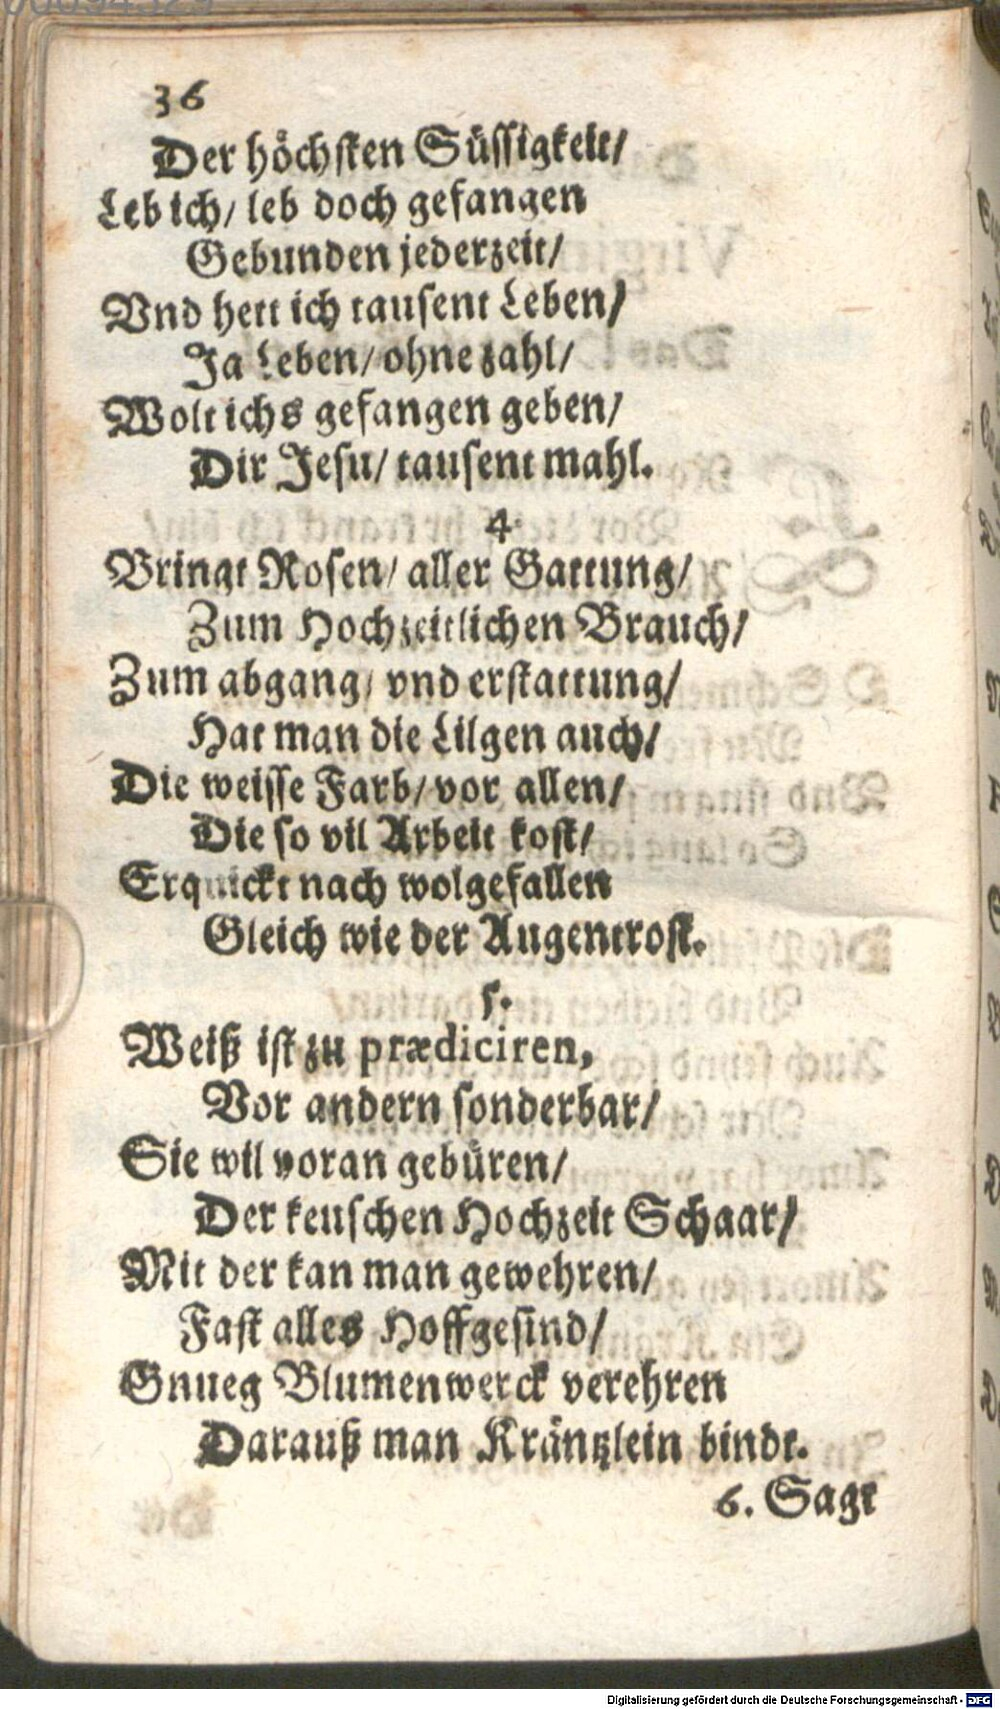 36
Der höchsten Süssigkeit/
Leb ich/ leb doch gefangen
Gebunden jederzeit/
Vnd hett ich tausent Leben/
Ja Leben/ ohne zahl/
Wolt ichs gefangen geben/
Dir Jesu/ tausent mahl.
4.
Bringt Rosen/ aller Gattung/
Zum Hochzeitlichen Brauch/
Zum abgang/ vnd erstattung/
Hat man die Lilgen auch/
Die weisse Farb/ vor allen/
Die so vil Arbeit kost/
Erquickt nach wolgefallen
Gleich wie der Augentrost.
5.
Weiß ist zu prædiciren,
Vor andern sonderbar/
Sie wil voran gebüren/
Der keuschen Hochzeit Schaar/
Mit der kan man gewehren/
Fast alles Hoffgesind/
Gnueg Blumenwerck verehren
Darauß man Kräntzlein bindt.
6. Sagt
Digitalisierung gefördert durch die Deutsche Forschungsgemeinschaft - DFG